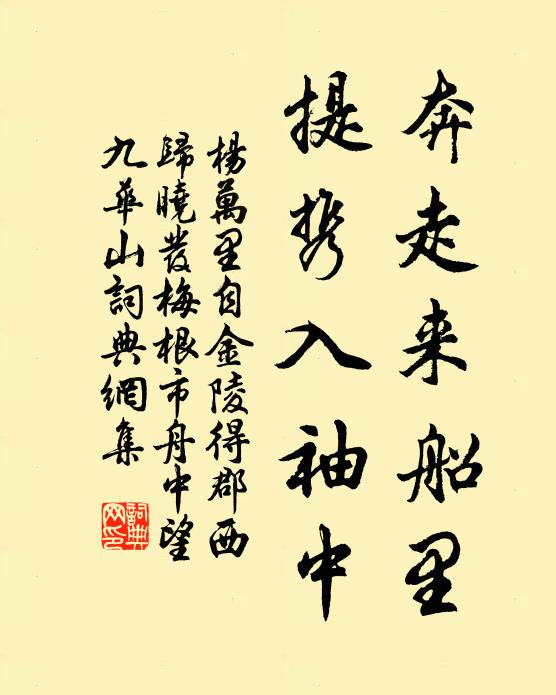 奔走来船里
提携入袖中
楊萬里自金陵得郡西
歸曉發梅根市舟中望
九華山詞典網集
詞典
网印